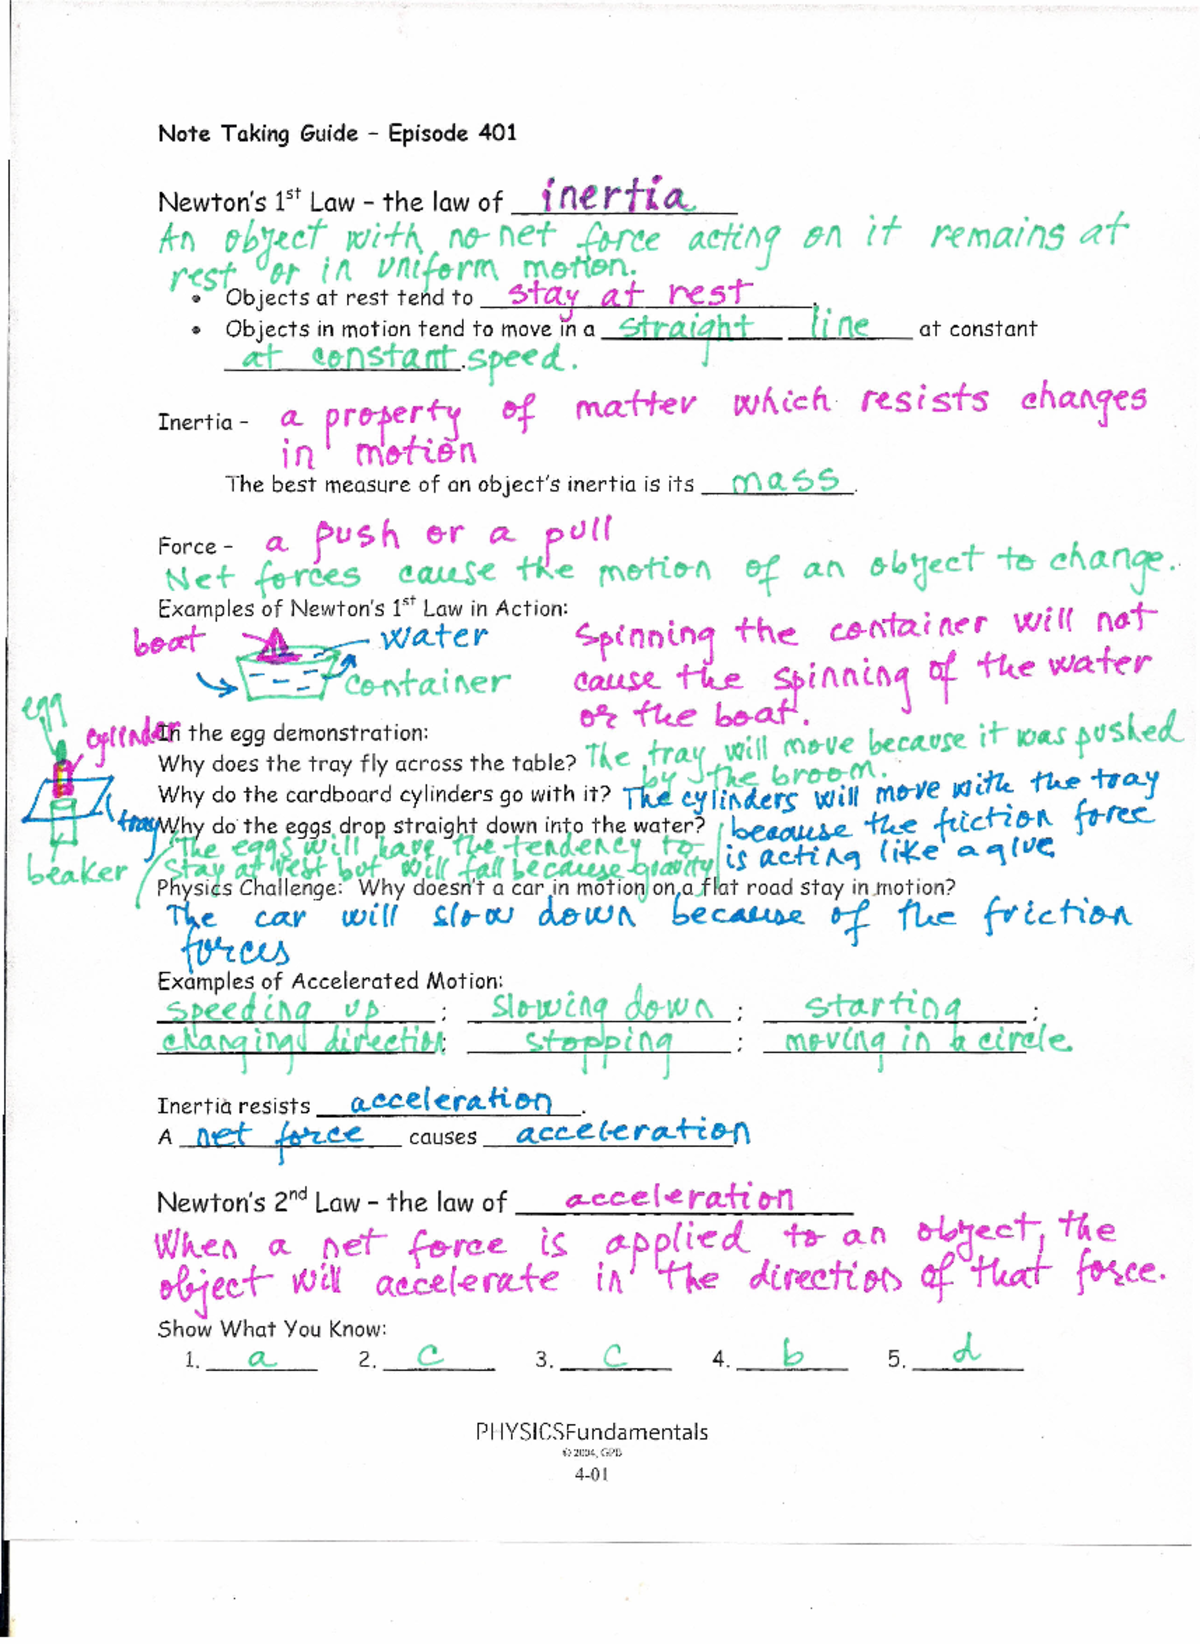 Note Taking Guide - Episode 401
Newton's 1st Law - the law of inertia
An object with no net force acting on it remains at
rest or in uniform motion.
• Objects at rest tend to stay at rest.
• Objects in motion tend to move in a straight line at constant
at constant speed.
Inertia - a property of matter which resists changes
in motion
The best measure of an object's inertia is its mass.
Force - a push or a pull
Net forces cause the motion of an object to change.
Examples of Newton's 1st Law in Action:
boat water
container
Spinning the container will not
cause the spinning of the water
or the boat.
egg
cylinder
tray
beaker
In the egg demonstration:
Why does the tray fly across the table? The tray will move because it was pushed
by the broom.
Why do the cardboard cylinders go with it? The cylinders will move with the tray
because the friction force
is acting like a glue
Why do the eggs drop straight down into the water?
The eggs will have the tendency to
stay at rest but will fall because gravity
Physics Challenge: Why doesn't a car in motion on a flat road stay in motion?
The car will slow down because of the friction
forces
Examples of Accelerated Motion:
speeding up ; slowing down ; starting ;
changing direction ; stopping ; moving in a circle.
Inertia resists acceleration.
A net force causes acceleration
Newton's 2nd Law - the law of acceleration
When a net force is applied to an object, the
object will accelerate in the direction of that force.
Show What You Know:
1. a 2. c 3. c 4. b 5. d
PHYSICSFundamentals
© 2004, GPB
4-01